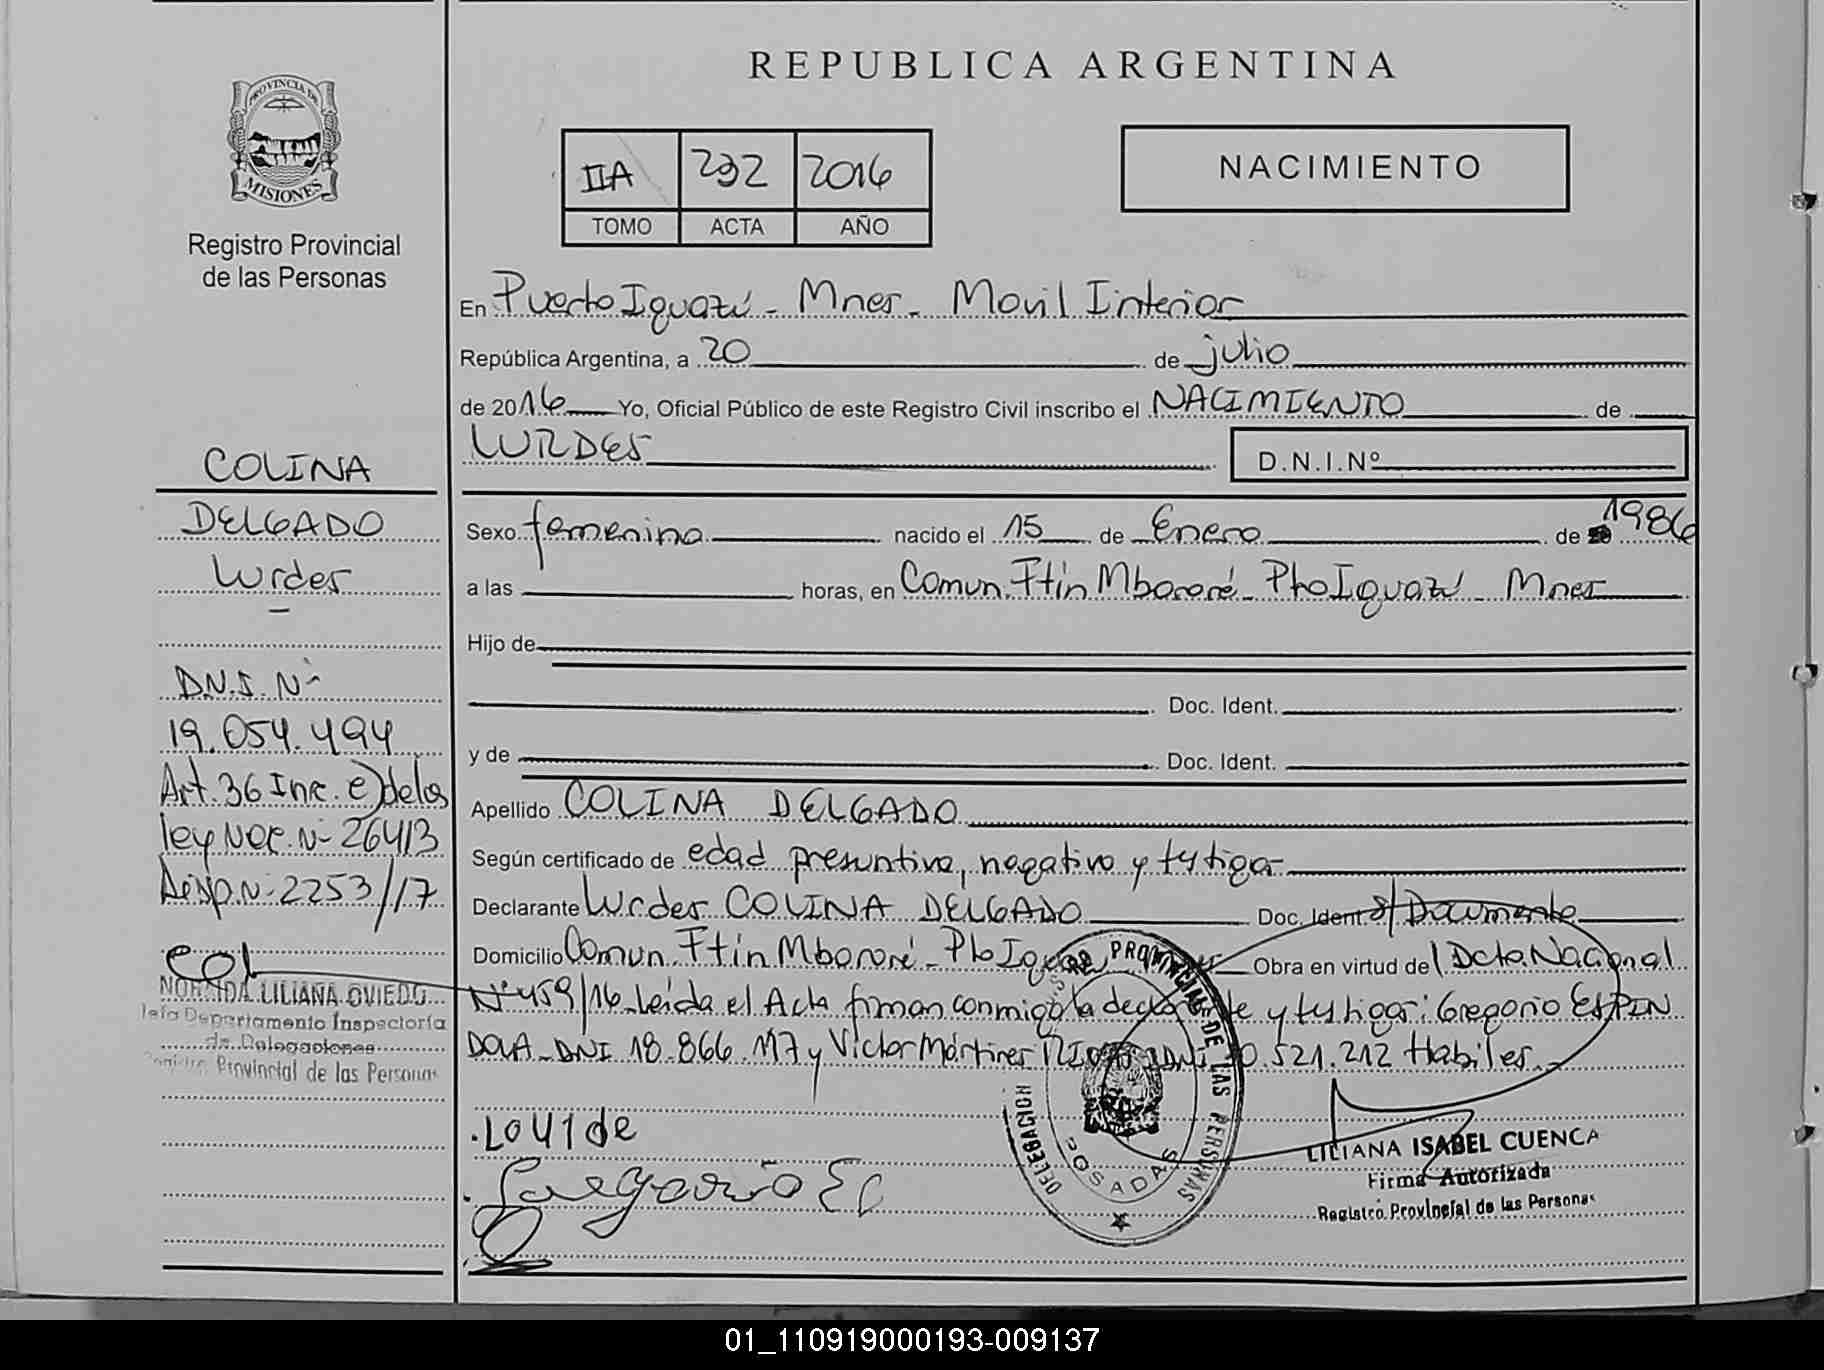 REPUBLICA ARGENTINA
PROVINCIA DE
MISIONES
Registro Provincial
de las Personas
IIA 232 2016
TOMO ACTA AÑO
NACIMIENTO
En Puerto Iguazú - Mnes - Movil Interior
República Argentina, a 20 de julio
de 2016 Yo, Oficial Público de este Registro Civil inscribo el NACIMIENTO de
LURDES
D.N.I.Nº
Sexo femenino nacido el 15 de Enero de 1986
a las horas, en Comun. Ftín Mbororé - Pto Iguazú - Mnes
Hijo de
Doc. Ident.
y de Doc. Ident.
Apellido COLINA DELGADO
Según certificado de edad presuntiva, negativo y testigos
Declarante Lurdes COLINA DELGADO Doc. Ident. s/ Documento
Domicilio Comun. Ftín Mbororé - Pto Obra en virtud del Dcto. Nacional
Nº 459/16 Leida el Acta firman conmigo la y testigos: Gregorio ESPIN
DOLA - DNI 18.866.117 y Victor Mártines 521.212 Habiles.
.LOU1de
Gregorio Es
COLINA
DELGADO
Lurdes
-
D.N.I. Nº
19.054.494
Art. 36 Inc. e) de las
ley Nac. Nº 26413
Disp. Nº 2253/17
LILIANA OVIEDO
Jefa Departamento Inspectoría
de Delegaciones
Registro Provincial de las Personas
PROVINCIAL DE LAS PERSONAS
DELEGACION
POSADAS
LILIANA ISABEL CUENCA
Firma Autorizada
Registro Provincial de las Personas
01_110919000193-009137